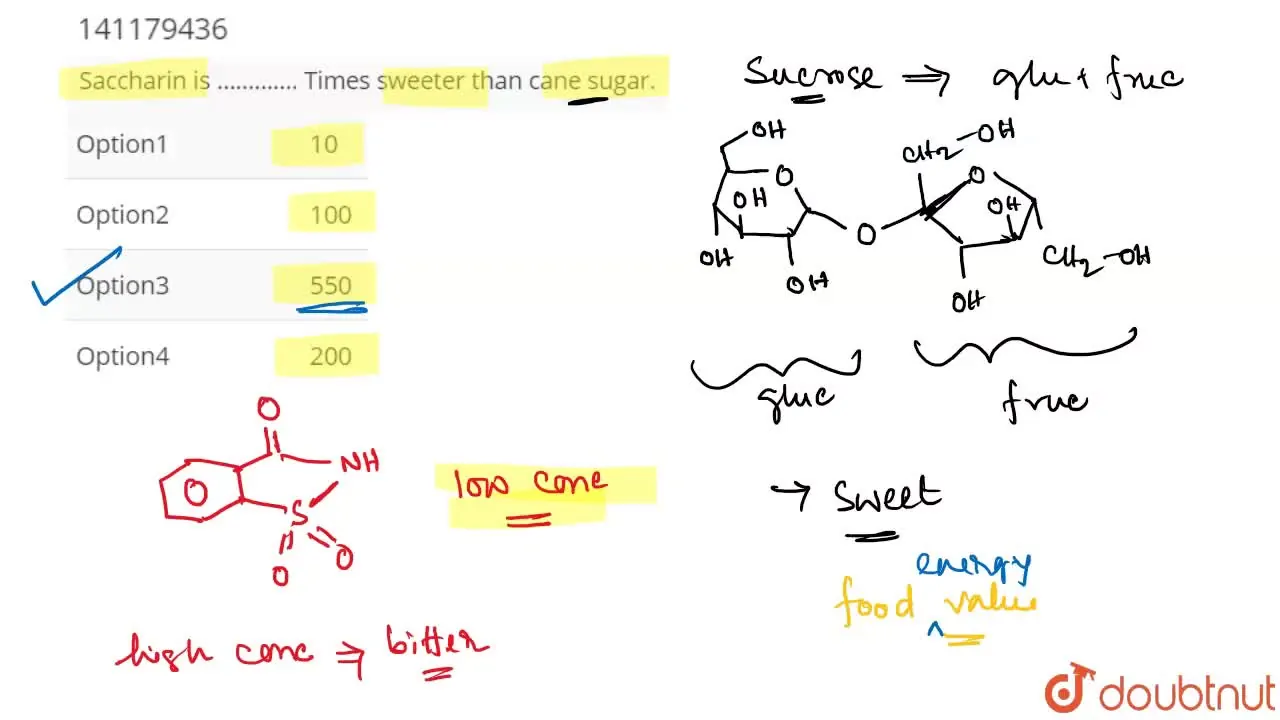 141179436
Saccharin is ............. Times sweeter than cane sugar.
Option1 10
Option2 100
Option3 550
Option4 200
O
NH
S
O O
O
low conc
high conc ⇒ bitter
Sucrose ⇒ glu + fruc
OH
CH2-OH
O
OH
O
OH
O
OH
OH
CH2-OH
OH
gluc
fruc
→ Sweet
energy
food value
^
doubtnut